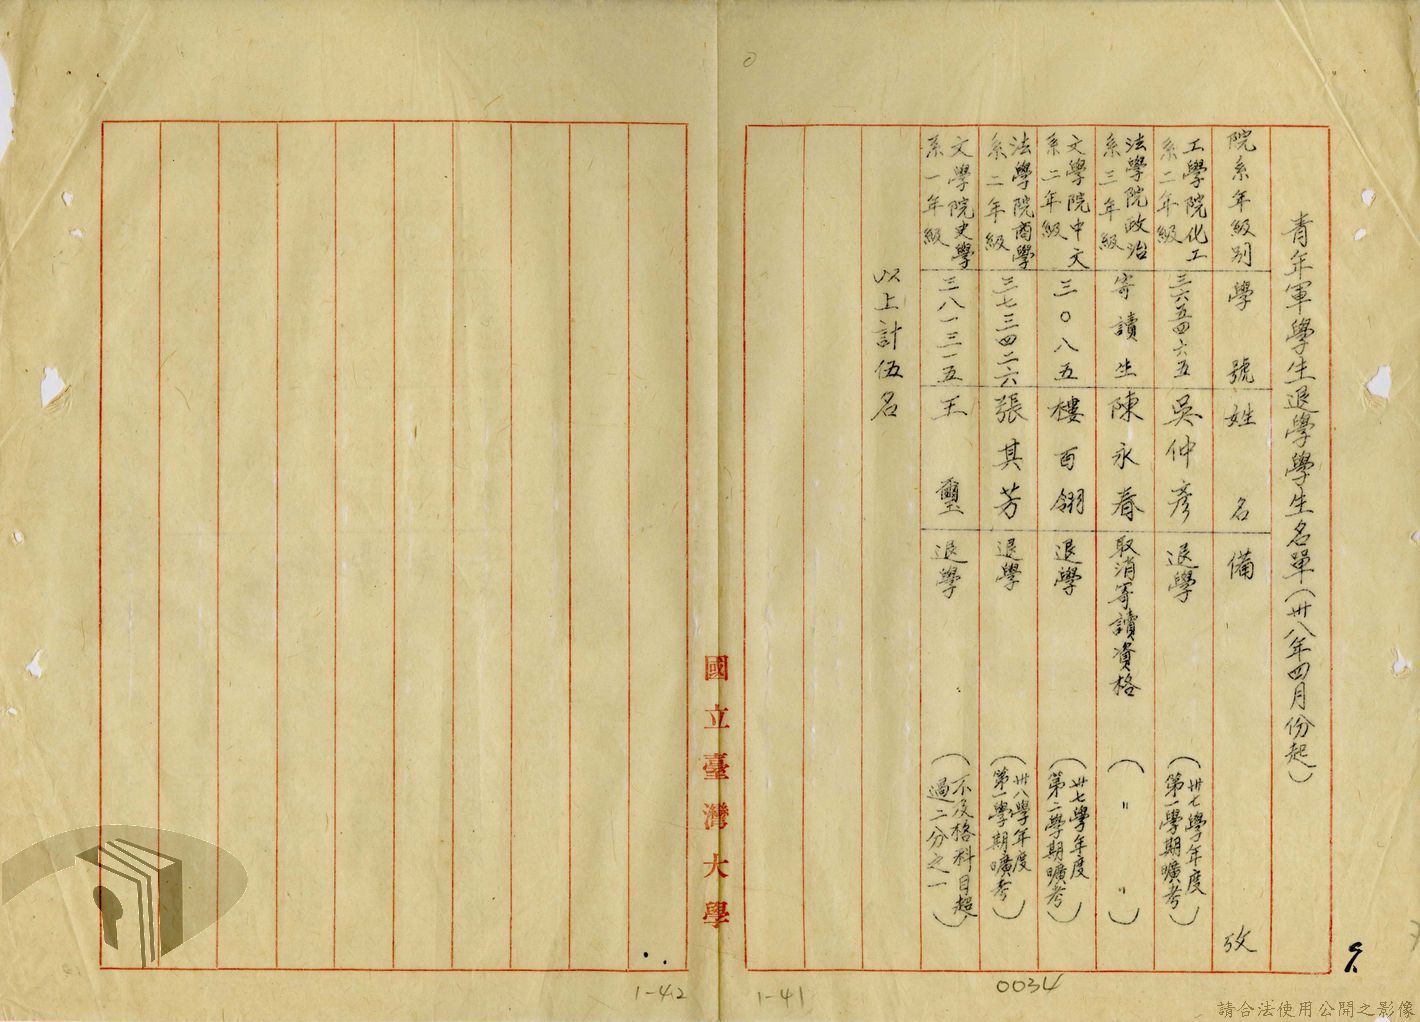 青年軍學生退學學生名單(卅八年四月份起)
院系年級別 學號 姓名 備攷
工學院化工系二年級 三六五四六五 吳仲彥 退學 (卅七學年度第一學期曠考)
法學院政治系三年級 寄讀生 陳永春 取消寄讀資格 ( 〃 〃 )
文學院中文系二年級 三〇八五 樓百翎 退學 (卅七學年度第二學期曠考)
法學院商學系二年級 三七三四二六 張其芳 退學 (卅八學年度第一學期曠考)
文學院史學系一年級 三八一三一五 王璽 退學 (不及格科目超過二分之一)
以上計伍名
國立臺灣大學
1-42
1-41
0034
請合法使用公開之影像